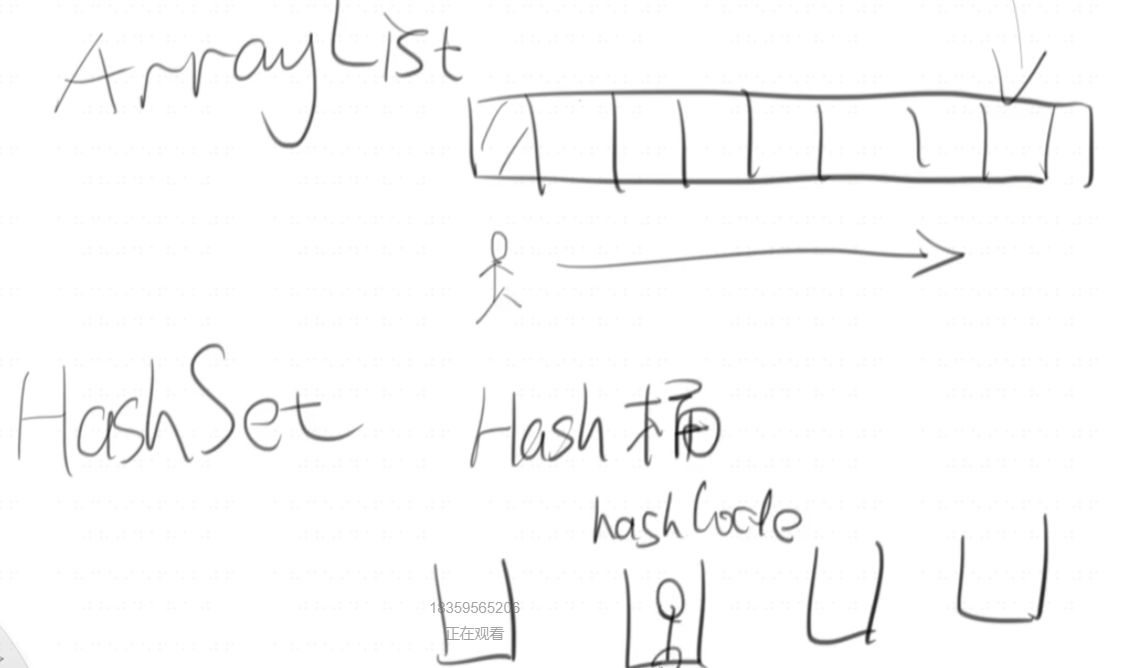 ArrayList
HashSet
Hash桶
hashCode
18359565206
正在观看